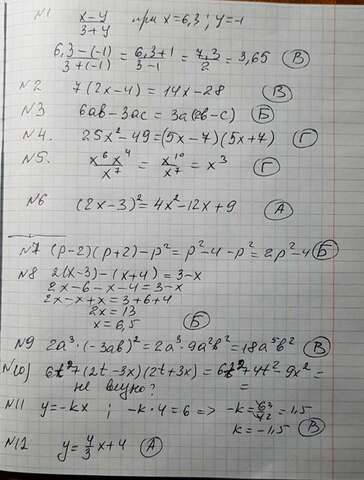 N1 x-y/3+y при x=6,3; y=-1
6,3-(-1)/3+(-1) = 6,3+1/3-1 = 7,3/2 = 3,65 В
N2 7(2x-4)=14x-28 В
N3 6ab-3ac=3a(2b-c) Б
N4. 25x²-49=(5x-7)(5x+7) Г
N5. x⁶x⁴/x⁷ = x¹⁰/x⁷ = x³ Г
N6 (2x-3)²=4x²-12x+9 А
N7 (p-2)(p+2)-p²=p²-4-p²=2p²-4 Б
N8 2(x-3)-(x+4)=3-x
2x-6-x-4=3-x
2x-x+x=3+6+4
2x=13
x=6,5 Б
N9 2a³·(-3ab)²=2a³·9a²b²=18a⁵b² В
N10) 6t²+(2t-3x)(2t+3x)=6t²+4t²-9x²=
не видно? =
N11 y=-kx; -k·4=6 => -k=6/4=1,5
k=-1,5 В
N12 y=4/3x+4 А